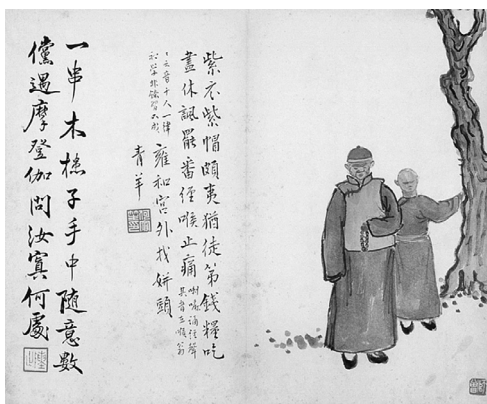 紫衣紫帽頗夷猶徒弟錢糧吃
盡休諷罷番經喉止痛
喇嘛誦經聲
千人一律
雍和宮外找姘頭
青羊
一串木槵子手中隨意數
儻過摩登伽問汝寘何處